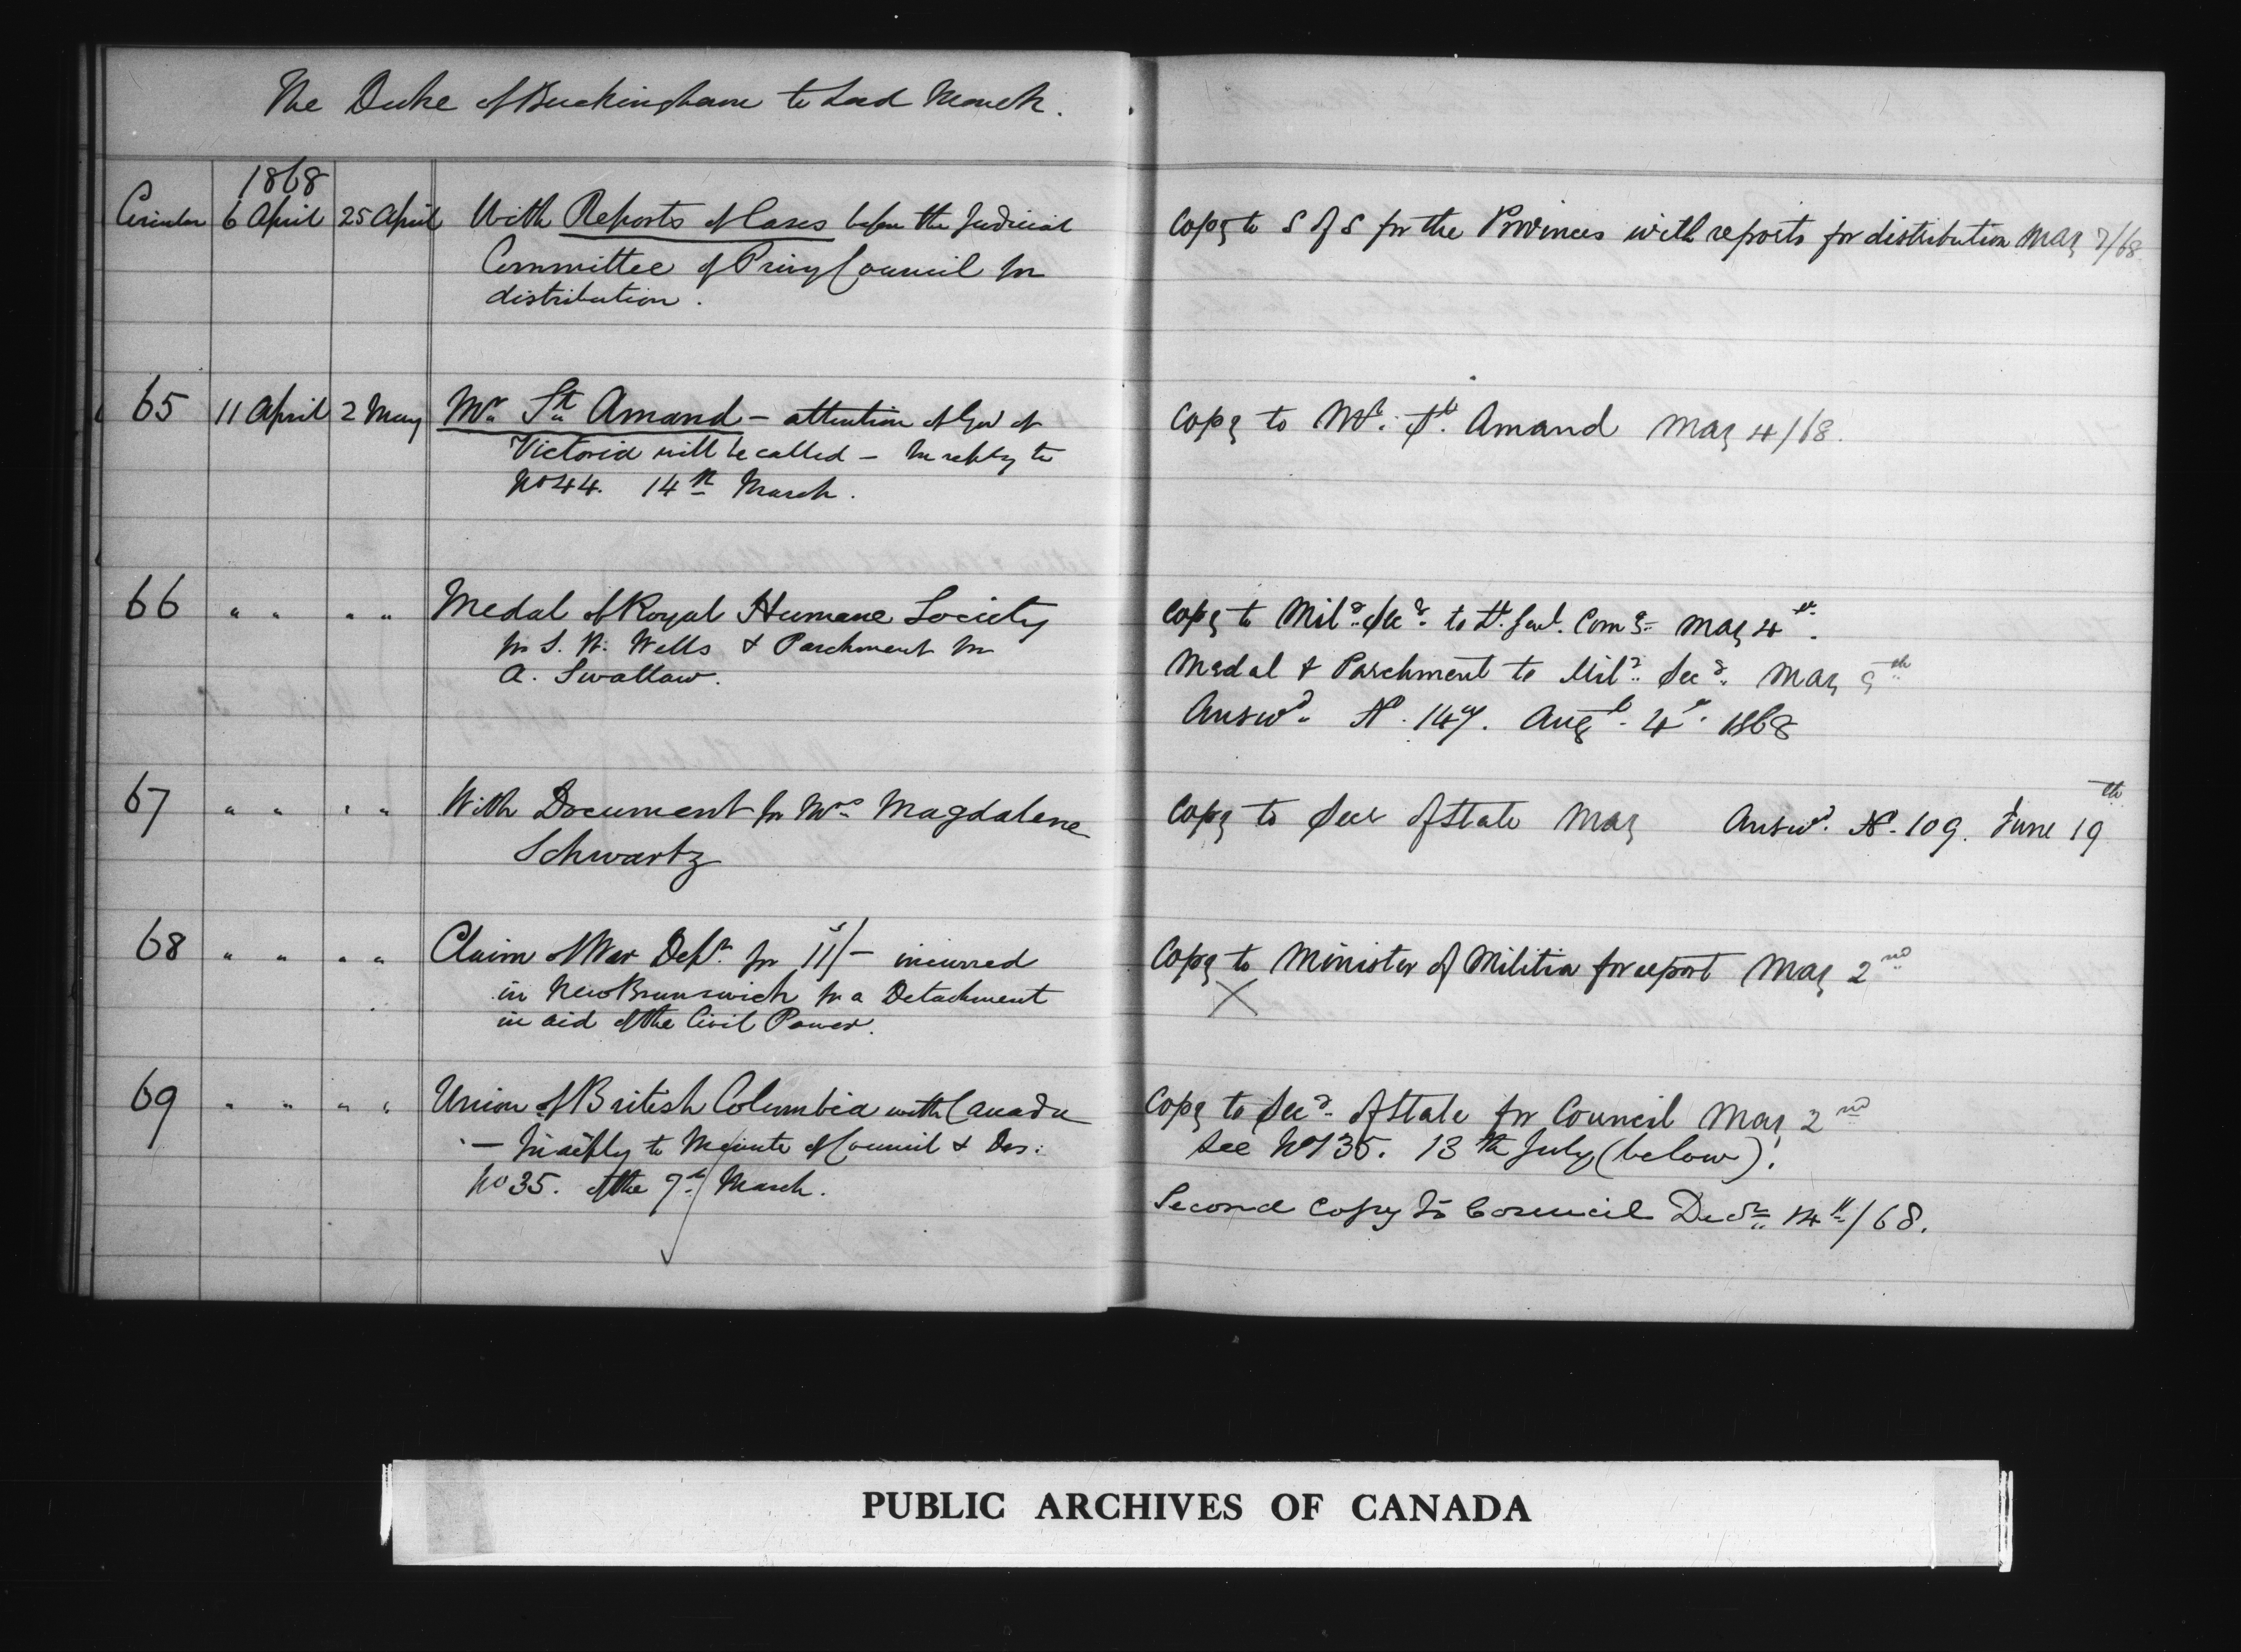 The Duke of Buckingham to Lord Monck.
1868
Circular 6 April 25 April With Reports of Cases before the Judicial
Committee of Privy Council for
distribution.
Copy to S of S for the Provinces with reports for distribution May 7/68
65 11 April 2 May Mr St Amand - attention of Gov of
Victoria will be called - In reply to
No 44. 14th March.
Copy to Mr. St. Amand May 4/68.
66 " " " " Medal of Royal Humane Society
for S. W. Wells & Parchment for
A. Swallow.
Copy to Mily Secy to Lt. Genl. Comg May 4th.
Medal & Parchment to Mily Secy May 5th
Answd. No. 147. Augt. 4th. 1868
67 " " " " With Document for Mrs Magdalene
Schwartz
Copy to Secy of State May Answd. No. 109. June 19th
68 " " " " Claim of War Dept. for 11s/- incurred
in New Brunswick for a Detachment
in aid of the Civil Power.
Copy to Minister of Militia for report May 2nd
X
69 " " " " Union of British Columbia with Canada
- In reply to Minute of Council & Des:
No 35. of the 7th March.
Copy to Secy of State for Council May 2nd
See No 135. 13th July (below).
Second Copy to Council Decr 14th/68.
PUBLIC ARCHIVES OF CANADA